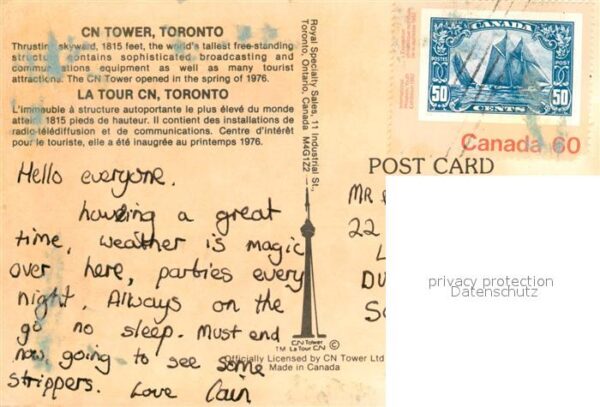 CN TOWER, TORONTO
Thrusting skyward, 1815 feet, the world's tallest free-standing
structure contains sophisticated broadcasting and
communications equipment as well as many tourist
attractions. The CN Tower opened in the spring of 1976.
LA TOUR CN, TORONTO
L'immeuble à structure autoportante le plus élevé du monde
atteint 1815 pieds de hauteur. Il contient des installations de
radio-télédiffusion et de communications. Centre d'intérêt
pour le touriste, elle a été inaugrée au printemps 1976.
Hello everyone.
having a great
time, weather is magic
over here, parties every
night. Always on the
go no sleep. Must end
now going to see some
strippers. Love Cain.
Royal Specialty Sales, 11 Industrial St.,
Toronto Ontario, Canada M4G1Z2
CN Tower
La Tour CN ©
TM
Officially Licensed by CN Tower Ltd
Made in Canada
CANADA
POSTES
POST
50
CENTS
50
Canada 60
POST CARD
MR
22
L
DU
SC
privacy protection
Datenschutz